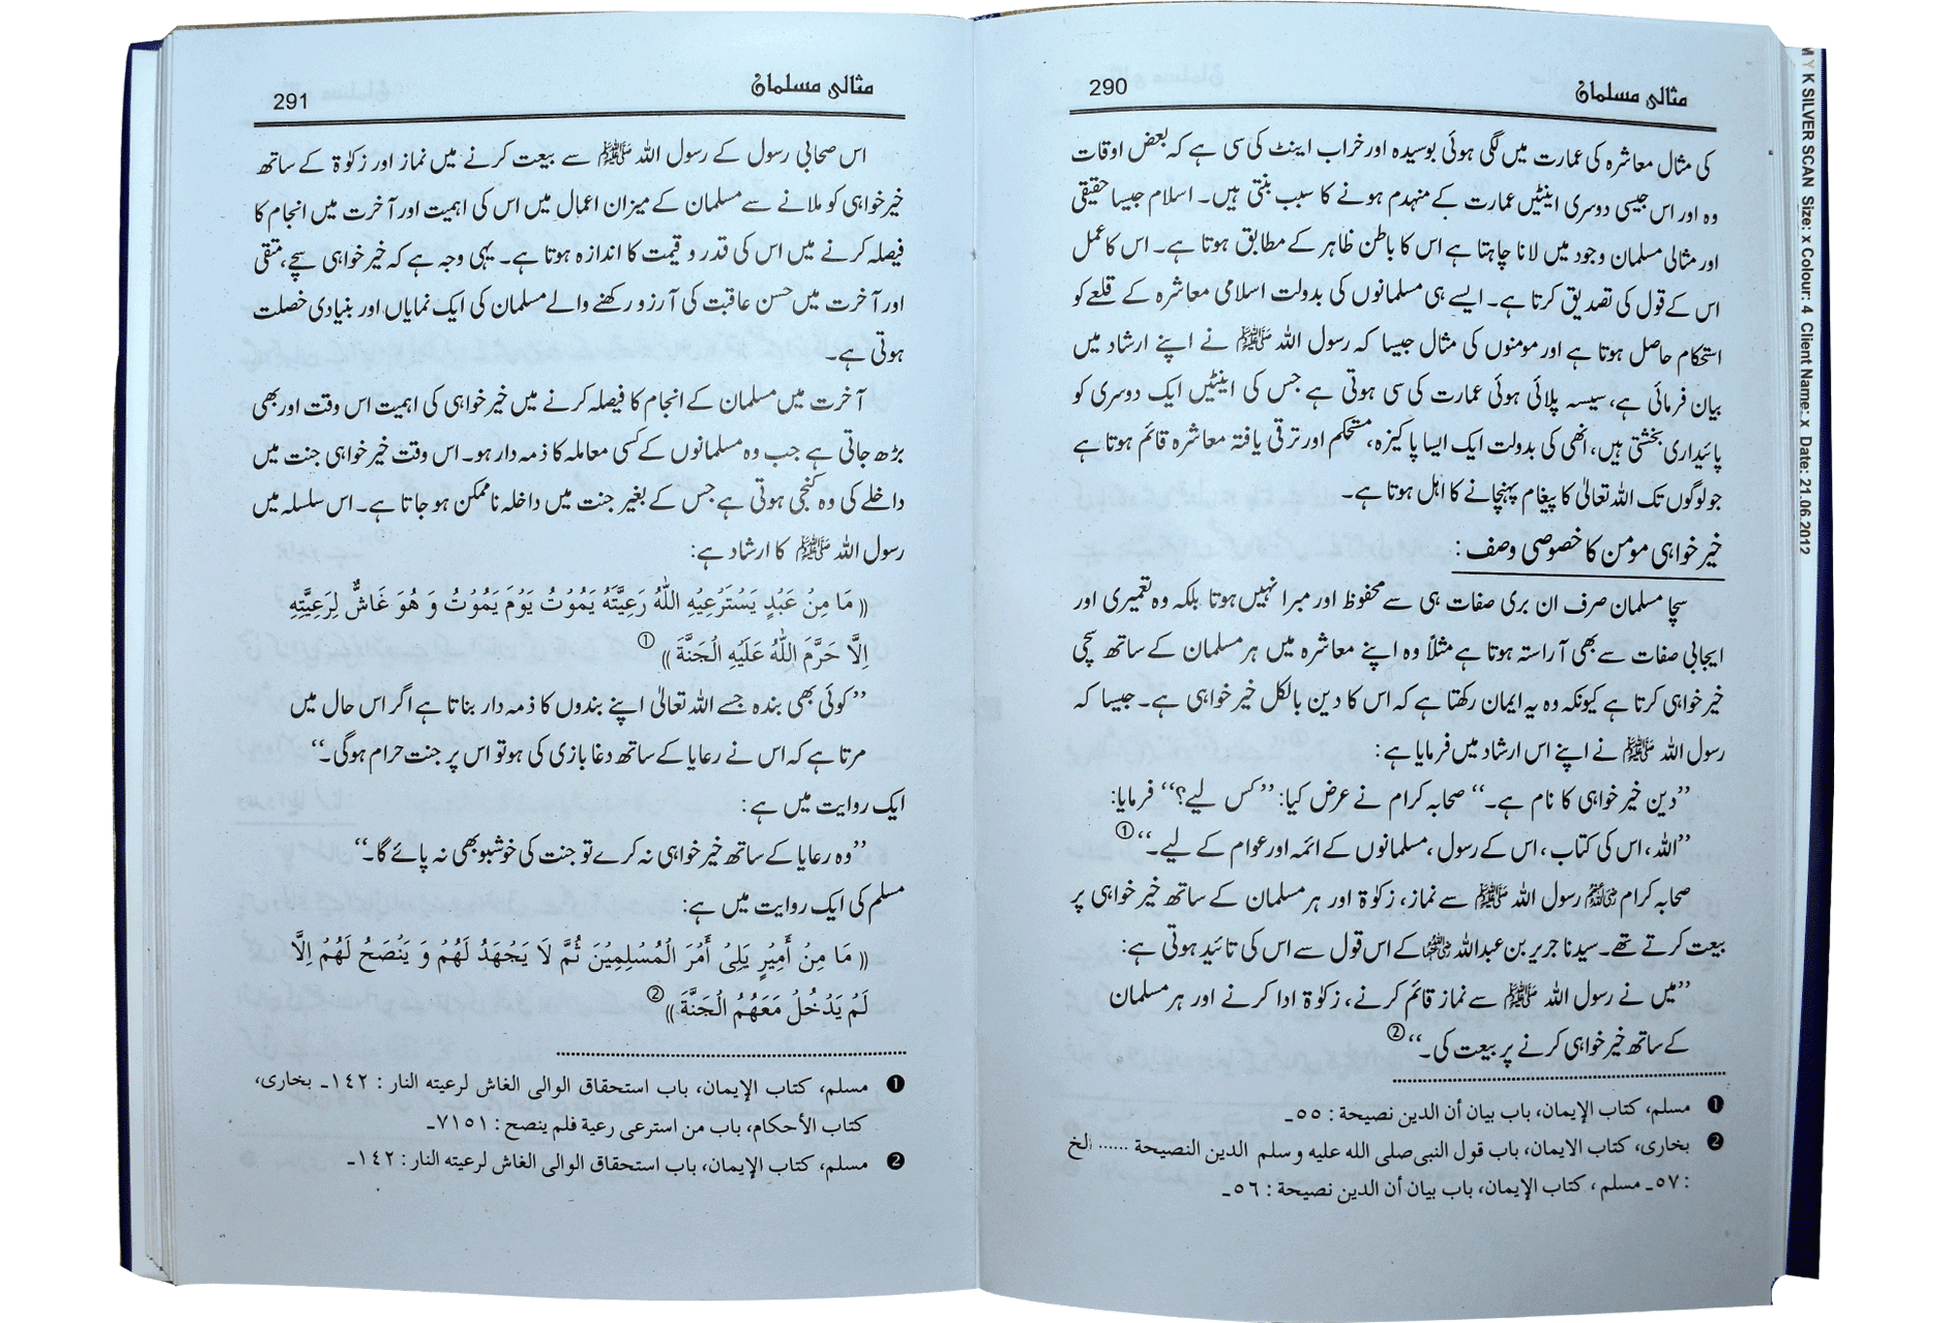 مثالی مسلمان
290
کی مثال معاشرہ کی عمارت میں لگی ہوئی بوسیدہ اور خراب اینٹ کی سی ہے کہ بعض اوقات
وہ اور اس جیسی دوسری اینٹیں عمارت کے منہدم ہونے کا سبب بنتی ہیں۔ اسلام جیسا حقیقی
اور مثالی مسلمان وجود میں لانا چاہتا ہے اس کا باطن ظاہر کے مطابق ہوتا ہے۔ اس کا عمل
اس کے قول کی تصدیق کرتا ہے۔ ایسے ہی مسلمانوں کی بدولت اسلامی معاشرہ کے قلعے کو
استحکام حاصل ہوتا ہے اور مومنوں کی مثال جیسا کہ رسول اللہ ﷺ نے اپنے ارشاد میں
بیان فرمائی ہے، سیسہ پلائی ہوئی عمارت کی سی ہوتی ہے جس کی اینٹیں ایک دوسری کو
پائیداری بخشتی ہیں، انھی کی بدولت ایک ایسا پاکیزہ، مستحکم اور ترقی یافتہ معاشرہ قائم ہوتا ہے
جو لوگوں تک اللہ تعالیٰ کا پیغام پہنچانے کا اہل ہوتا ہے۔
خیر خواہی مومن کا خصوصی وصف :
سچا مسلمان صرف ان بری صفات ہی سے محفوظ اور مبرا نہیں ہوتا بلکہ وہ تعمیری اور
ایجابی صفات سے بھی آراستہ ہوتا ہے مثلاً وہ اپنے معاشرہ میں ہر مسلمان کے ساتھ سچی
خیر خواہی کرتا ہے کیونکہ وہ یہ ایمان رکھتا ہے کہ اس کا دین بالکل خیر خواہی ہے۔ جیسا کہ
رسول اللہ ﷺ نے اپنے اس ارشاد میں فرمایا ہے:
’’دین خیر خواہی کا نام ہے۔‘‘ صحابہ کرام نے عرض کیا: ’’کس لیے؟‘‘ فرمایا:
’’اللہ، اس کی کتاب، اس کے رسول، مسلمانوں کے ائمہ اور عوام کے لیے۔‘‘①
صحابہ کرام رضی اللہ عنہم رسول اللہ ﷺ سے نماز، زکوٰۃ اور ہر مسلمان کے ساتھ خیر خواہی پر
بیعت کرتے تھے۔ سیدنا جریر بن عبداللہ رضی اللہ عنہ کے اس قول سے اس کی تائید ہوتی ہے:
’’میں نے رسول اللہ ﷺ سے نماز قائم کرنے، زکوٰۃ ادا کرنے اور ہر مسلمان
کے ساتھ خیر خواہی کرنے پر بیعت کی۔‘‘②
❶ مسلم، كتاب الإيمان، باب بيان أن الدين نصيحة : ٥٥ـ
❷ بخاری، كتاب الايمان، باب قول النبی صلی الله علیه وسلم الدین النصیحة ...... الخ
: ٥٧ـ مسلم ، كتاب الإيمان، باب بيان أن الدين نصيحة : ٥٦ـ
مثالی مسلمان
291
اس صحابی رسول کے رسول اللہ ﷺ سے بیعت کرنے میں نماز اور زکوٰۃ کے ساتھ
خیر خواہی کو ملانے سے مسلمان کے میزان اعمال میں اس کی اہمیت اور آخرت میں انجام کا
فیصلہ کرنے میں اس کی قدر و قیمت کا اندازہ ہوتا ہے۔ یہی وجہ ہے کہ خیر خواہی سچے، متقی
اور آخرت میں حسن عاقبت کی آرزو رکھنے والے مسلمان کی ایک نمایاں اور بنیادی خصلت
ہوتی ہے۔
آخرت میں مسلمان کے انجام کا فیصلہ کرنے میں خیر خواہی کی اہمیت اس وقت اور بھی
بڑھ جاتی ہے جب وہ مسلمانوں کے کسی معاملہ کا ذمہ دار ہو۔ اس وقت خیر خواہی جنت میں
داخلے کی وہ کنجی ہوتی ہے جس کے بغیر جنت میں داخلہ ناممکن ہو جاتا ہے۔ اس سلسلہ میں
رسول اللہ ﷺ کا ارشاد ہے:
(( مَا مِنْ عَبْدٍ يَسْتَرْعِيْهِ اللّٰهُ رَعِيَّتَهُ يَمُوْتُ يَوْمَ يَمُوْتُ وَ هُوَ غَاشٌّ لِرَعِيَّتِهِ
اِلَّا حَرَّمَ اللّٰهُ عَلَيْهِ الْجَنَّةَ ))①
’’کوئی بھی بندہ جسے اللہ تعالیٰ اپنے بندوں کا ذمہ دار بناتا ہے اگر اس حال میں
مرتا ہے کہ اس نے رعایا کے ساتھ دغا بازی کی ہو تو اس پر جنت حرام ہوگی۔‘‘
ایک روایت میں ہے:
’’وہ رعایا کے ساتھ خیر خواہی نہ کرے تو جنت کی خوشبو بھی نہ پائے گا۔‘‘
مسلم کی ایک روایت میں ہے:
(( مَا مِنْ أَمِيْرٍ يَلِىْ أَمْرَ الْمُسْلِمِيْنَ ثُمَّ لَا يَجْهَدُ لَهُمْ وَ يَنْصَحُ لَهُمْ اِلَّا
لَمْ يَدْخُلْ مَعَهُمُ الْجَنَّةَ ))②
❶ مسلم، كتاب الإيمان، باب استحقاق الوالی الغاش لرعيته النار : ١٤٢ـ بخاری،
كتاب الأحكام، باب من استرعی رعية فلم ينصح : ٧١٥١ـ
❷ مسلم، كتاب الإيمان، باب استحقاق الوالی الغاش لرعيته النار : ١٤٢ـ
M Y K SILVER SCAN Size: x Colour: 4 Client Name: x Date: 21.06.2012